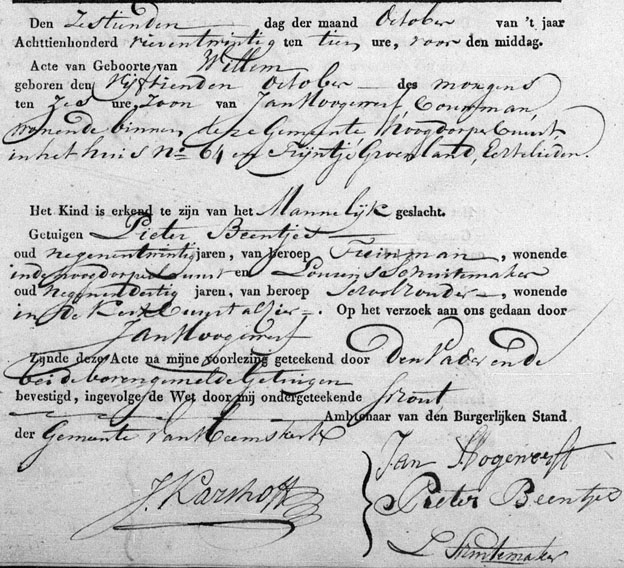 Den Zestienden dag der maand October van 't jaar
Achttienhonderd vierentwintig ten tien ure, voor den middag.
Acte van Geboorte van Willem
geboren den vijftienden October des morgens
ten zes ure, Zoon van Jan Hoogewerf Tuinman
wonende binnen deze Gemeente Hoogdorper Buurt
in het huis No 64 en Trijntje Groenland, Echtelieden.
Het Kind is erkend te zijn van het Mannelijk geslacht.
Getuigen Pieter Beentjes
oud negenentwintig jaren, van beroep Tuinman, wonende
in de Hoogdorper Buurt en Lourens Schuitemaker
oud negenendertig jaren, van beroep Schoolhouder, wonende
in de Kerk Buurt alhier. Op het verzoek aan ons gedaan door
Jan Hoogewerf
Zijnde deze Acte na mijne voorlezing geteekend door den Vader en de
beide bovengemelde Getuigen
bevestigd, ingevolge de Wet door mij ondergeteekende
Ambtenaar van den Burgerlijken Stand
der Gemeente van Heemskerk
Jan Hogewerft
Pieter Beentjes
L Schuitemaker